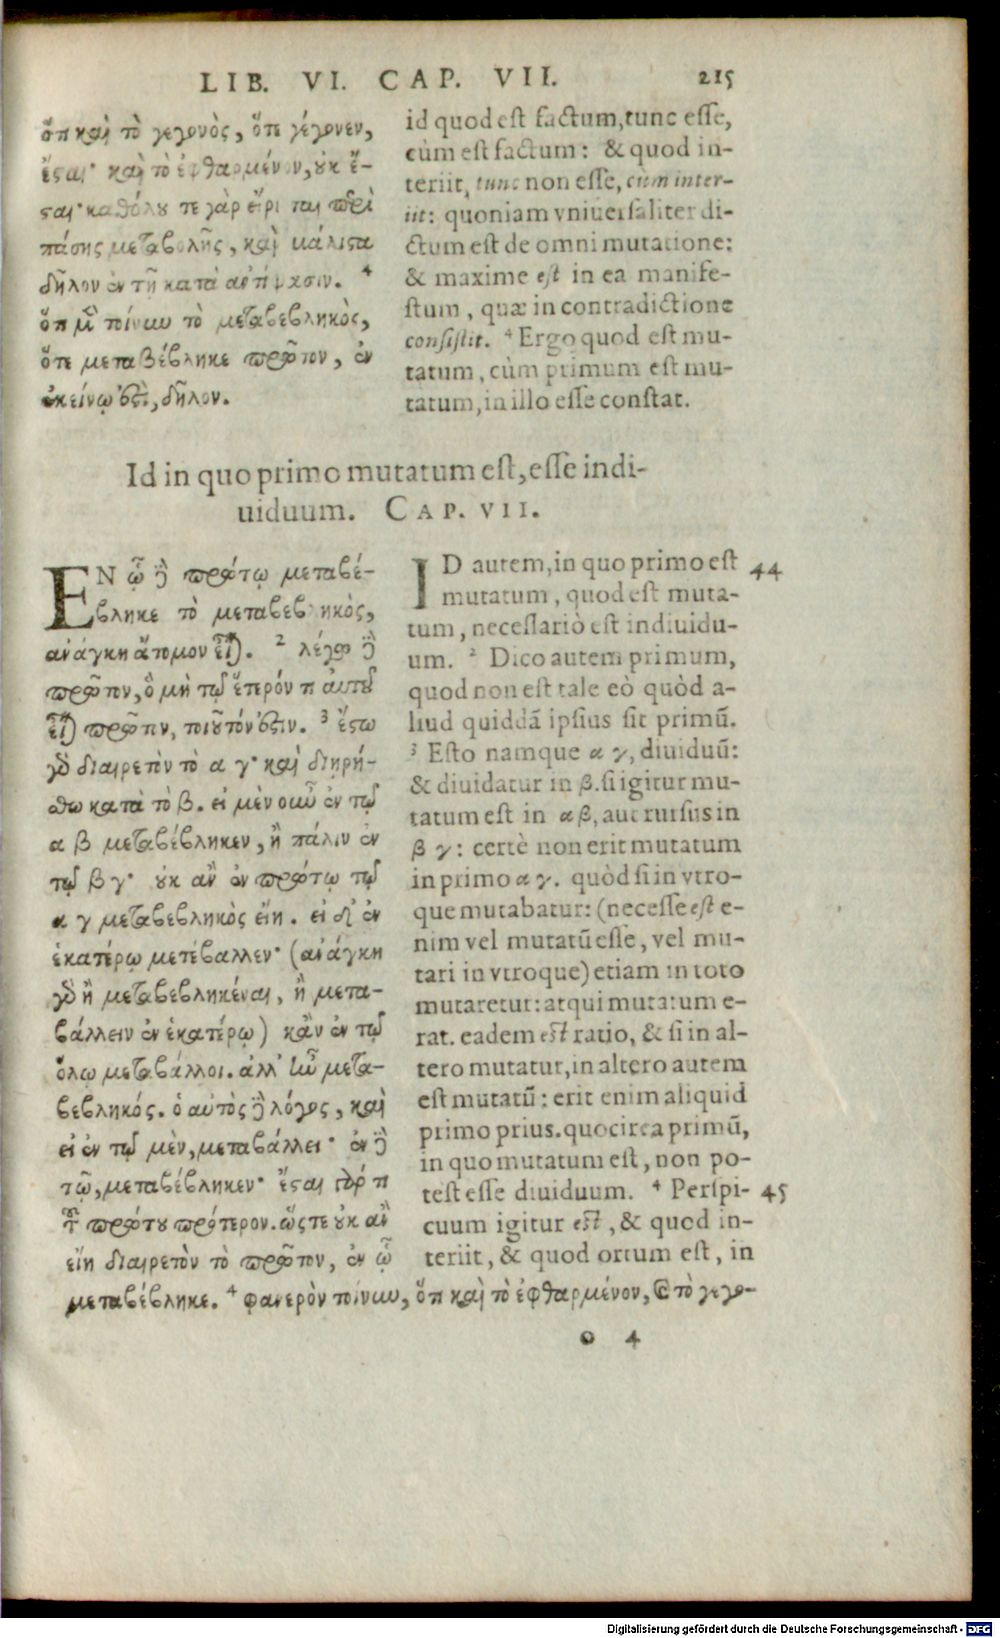 LIB. VI. CAP. VII. 215
ὅτι καὶ τὸ γεγονὸς, ὅτε γέγονεν,
ἔςαι· καὶ τὸ ἐφθαρμένον, ουκ ἔ-
ςαι· καθόλου τε γὰρ εἴρηται περὶ
πάσης μεταβολῆς, καὶ μάλιςα
δῆλον ἐν τῇ κατὰ ἀντίφασιν. 4
ὅτι μὲν τοίνυν τὸ μεταβεβληκὸς,
ὅτε μεταβέβληκε πρῶτον, ἐν
ἐκείνῳ ἐςὶ, δῆλον.
id quod est factum, tunc esse,
cùm est factum: & quod in-
teriit, tunc non esse, cùm inter-
iit: quoniam vniuersaliter di-
ctum est de omni mutatione:
& maxime est in ea manife-
stum, quæ in contradictione
consistit. 4 Ergo quod est mu-
tatum, cùm primum est mu-
tatum, in illo esse constat.
Id in quo primo mutatum est, esse indi-
uiduum. CAP. VII.
ΕΝ ᾧ δὲ πρώτῳ μεταβέ-
βληκε τὸ μεταβεβληκὸς,
ἀνάγκη ἄτομον εἶναι. 2 λέγω δὲ
πρῶτον, ὃ μὴ τῷ ἕτερόν τι αὐτοῦ
εἶναι πρῶτον, τοιοῦτόν ἐςιν. 3 ἔςω
γὰρ διαιρετὸν τὸ α γ· καὶ διῃρή-
σθω κατὰ τὸ β. εἰ μὲν οὖν ἐν τῷ
α β μεταβέβληκεν, ἢ πάλιν ἐν
τῷ β γ· οὐκ ἂν ἐν πρώτῳ τῷ
α γ μεταβεβληκὸς εἴη. εἰ δ' ἐν
ἑκατέρῳ μετέβαλλεν· (ἀνάγκη
γὰρ ἢ μεταβεβληκέναι, ἢ μετα-
βάλλειν ἐν ἑκατέρῳ) κἂν ἐν τῷ
ὅλῳ μεταβάλλοι. ἀλλ' ἦν μετα-
βεβληκός. ὁ αὐτὸς δὲ λόγος, καὶ
εἰ ἐν τῷ μὲν, μεταβάλλει· ἐν δὲ
τῷ, μεταβέβληκεν· ἔςαι γάρ τι
τοῦ πρώτου πρότερον. ὥςτε οὐκ ἂν
εἴη διαιρετὸν τὸ πρῶτον, ἐν ᾧ
μεταβέβληκε. 4 φανερὸν τοίνυν, ὅτι καὶ τὸ ἐφθαρμένον, καὶ τὸ γεγο-
ID autem, in quo primo est 44
mutatum, quod est muta-
tum, necessariò est indiuidu-
um. 2 Dico autem primum,
quod non est tale eò quòd a-
liud quiddā ipsius sit primū.
3 Esto namque α γ, diuiduū:
& diuidatur in β. si igitur mu-
tatum est in α β, aut rursus in
β γ: certè non erit mutatum
in primo α γ. quòd si in vtro-
que mutabatur: (necesse est e-
nim vel mutatū esse, vel mu-
tari in vtroque) etiam in toto
mutaretur: atqui mutatum e-
rat. eadem est ratio, & si in al-
tero mutatur, in altero autem
est mutatū: erit enim aliquid
primo prius. quocirca primū,
in quo mutatum est, non po-
test esse diuiduum. 4 Perspi- 45
cuum igitur est, & quod in-
teriit, & quod ortum est, in
o 4
Digitalisierung gefördert durch die Deutsche Forschungsgemeinschaft - DFG